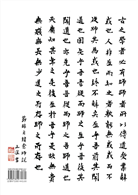 古之學者必有師師者所以傳道受業解
惑也人非生而知之者孰能無惑惑而不
從師其為惑也終不解矣生乎吾前其
聞道也固先乎吾吾從而師之生乎吾後其
聞道也亦先乎吾吾從而師之吾師道也
夫庸知其年之先後生於吾乎是故
無貴無賤無長無少道之所存師之所存也